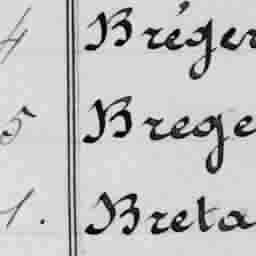 4 Bréger
5 Brege
1. Breta